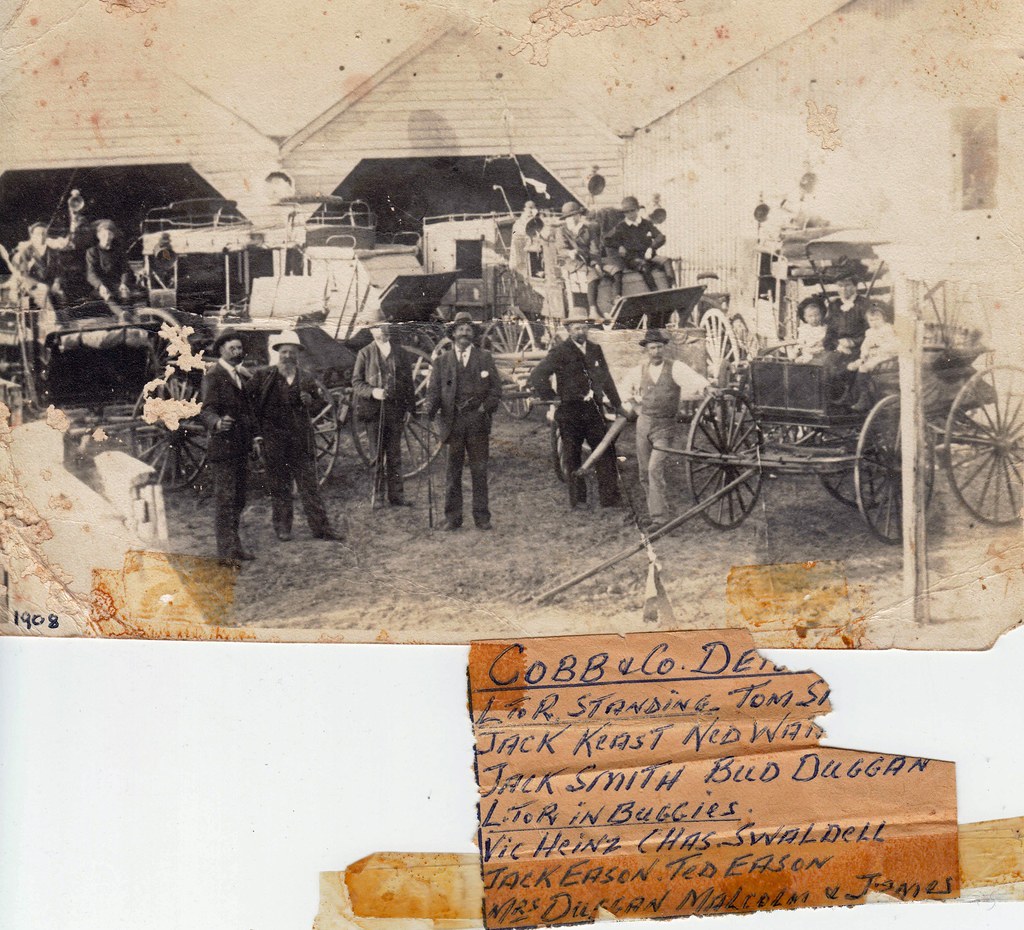 1908
COBB & Co. DE
L To R. STANDING. TOM S
JACK KEAST NED WA
JACK SMITH BUD DUGGAN
L. To R. iN BUGGIES.
Vic HEINZ CHAS. SWALDELL
JACK EASON. TED EASON
MRS DUGGAN MALCOLM & JAMES